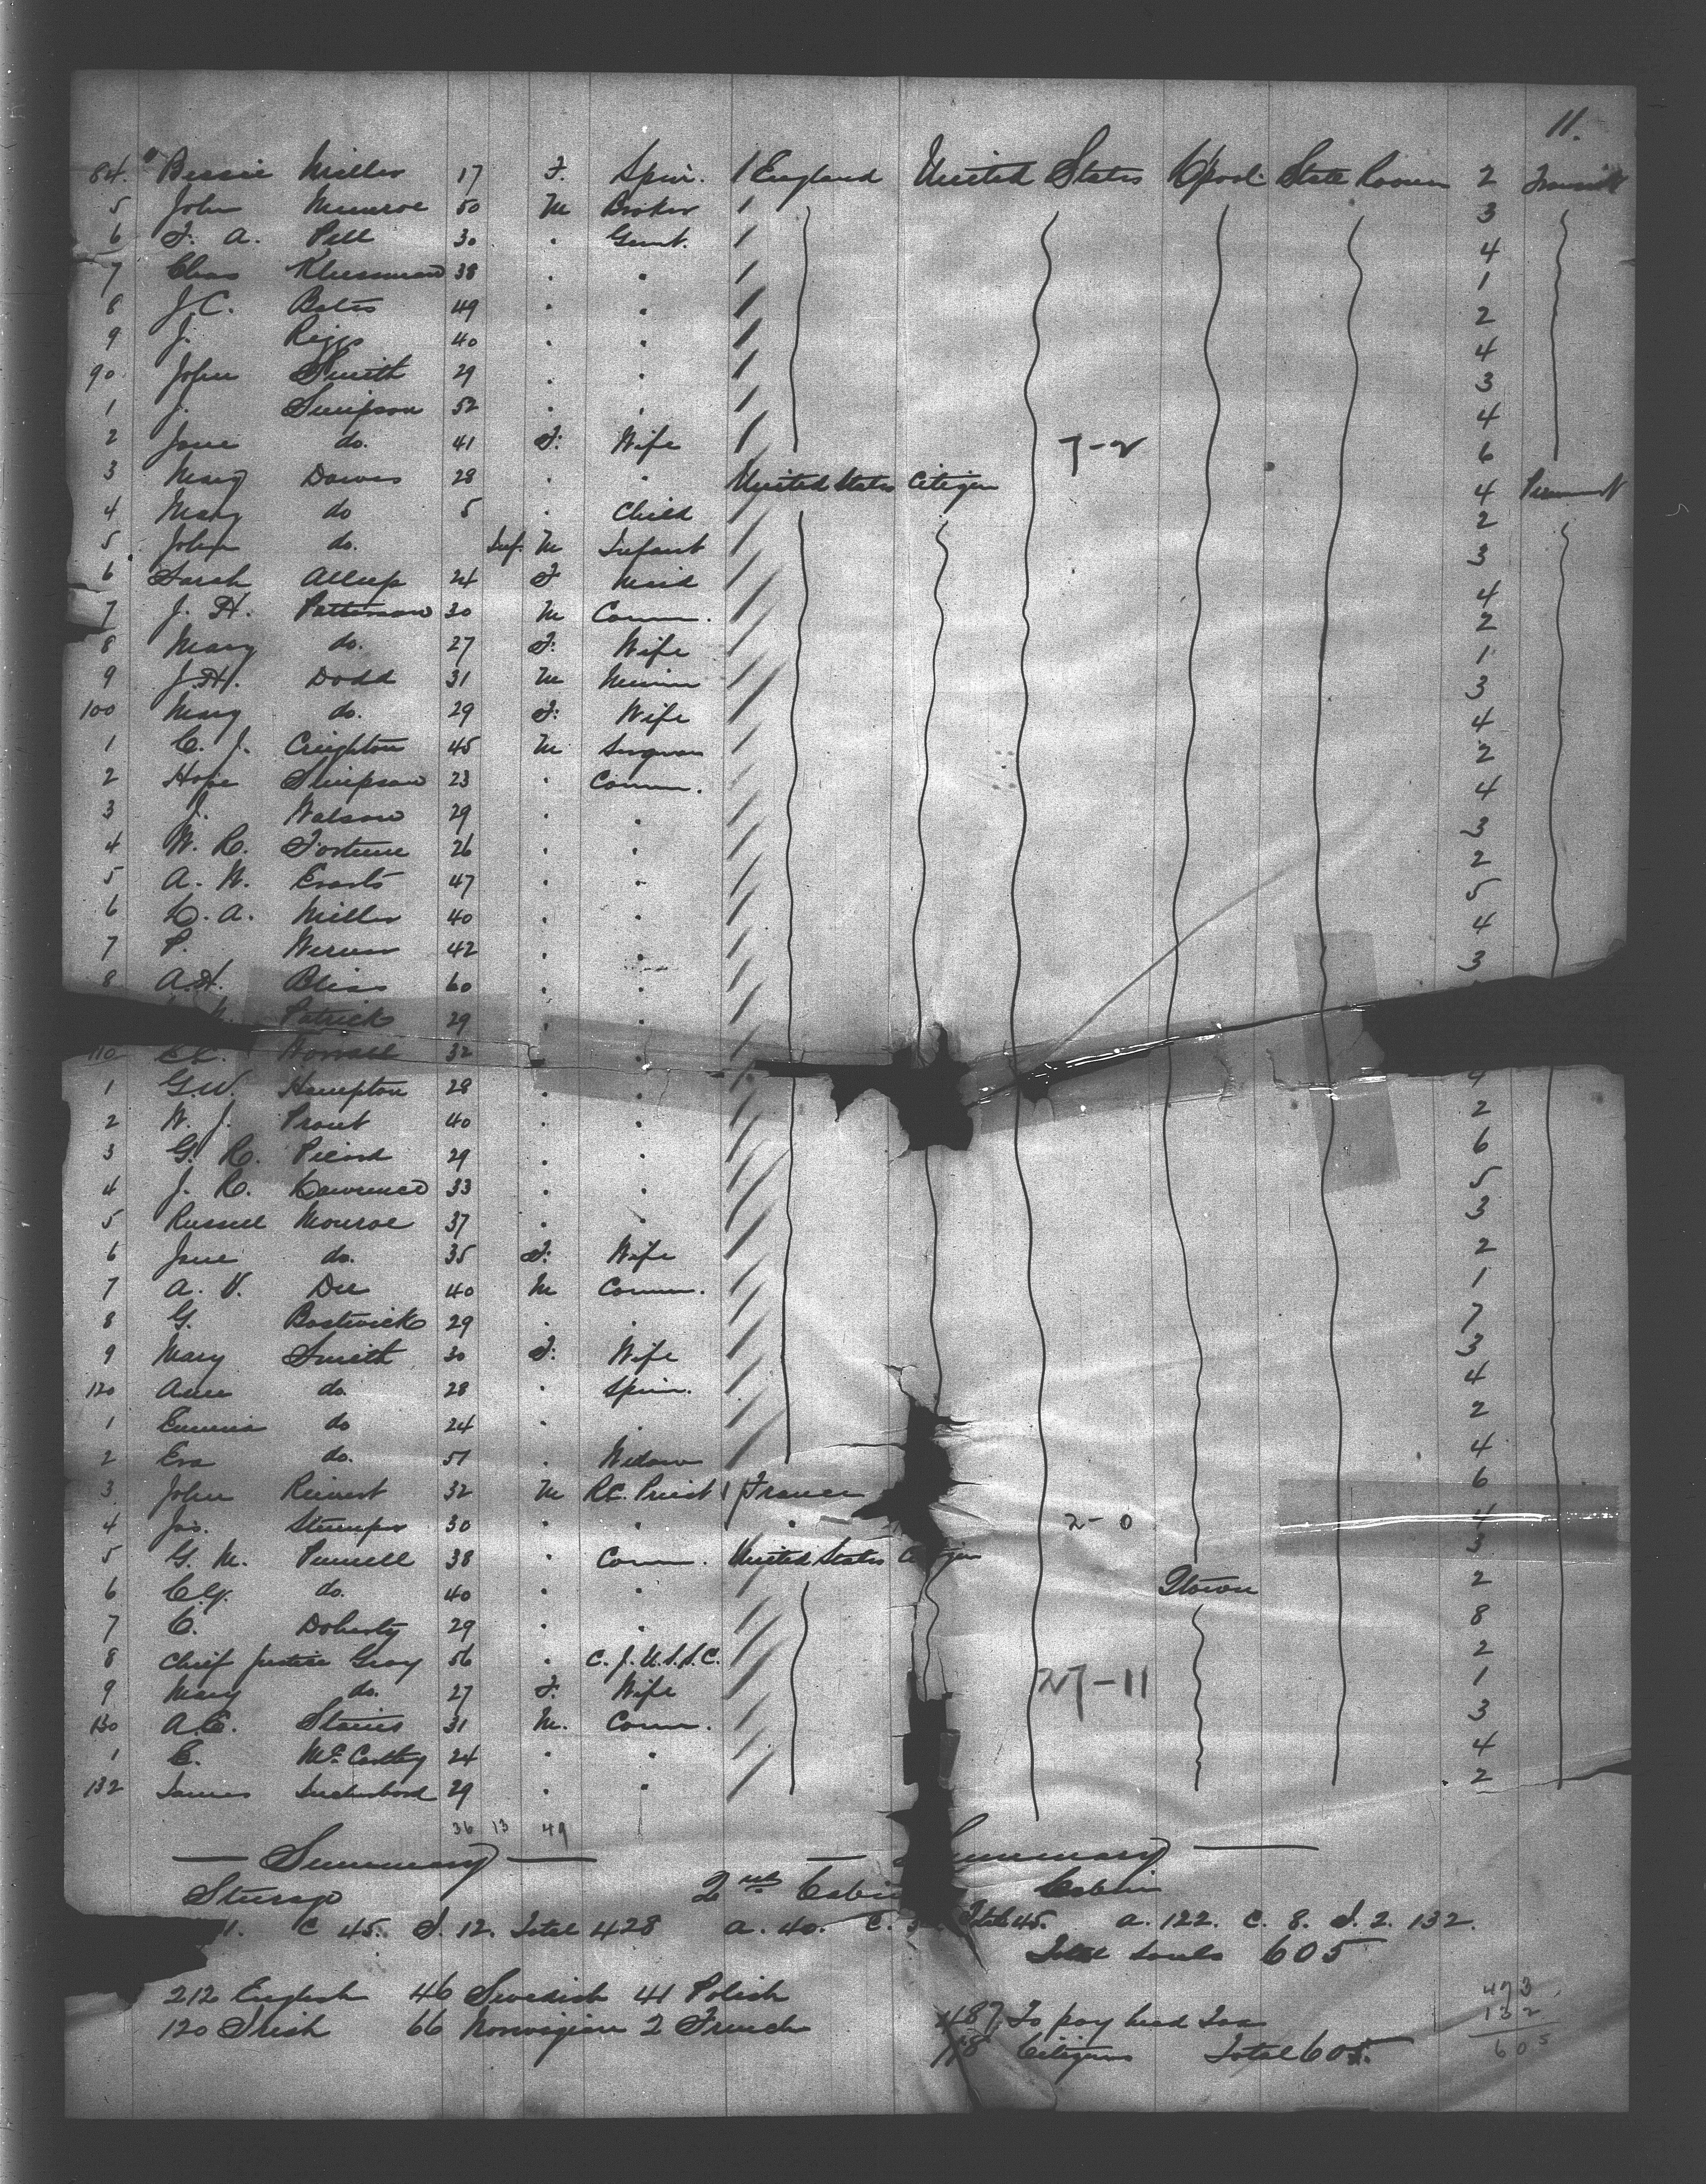 11.
84. Bessie Miller 17 F. Spin. 1 England United States L'pool State Room 2 Transit
5 John Munroe 50 M Broker 1 3
6 F. A. Pell 30 " Gent. 1 4
7 Chas 38 " " 1 1
8 J. C. Bates 49 " " 1 2
9 J. Riggs 40 " " 1 4
90 John Smith 29 " " 1 3
1 J. Simpson 52 " " 1 4
2 Jane do. 41 F. Wife 1 7-2 6
3 Mary Dawes 28 " " United States Citizen 4
4 Mary do 5 " Child 2
5 John do. Inf. M Infant 3
6 Sarah Allsop 24 F Maid 4
7 J. H. Patterson 30 M Comm. 2
8 Mary do. 27 F. Wife 1
9 J. H. Dodd 31 M 3
100 Mary do. 29 F. Wife 4
1 C. J. Creighton 45 M Surgeon 2
2 Hope Simpson 23 " Comm. 4
3 J. Watson 29 " " 3
4 W. R. Fortune 26 " " 2
5 A. W. Evarts 47 " " 5
6 L. A. Miller 40 " " 4
7 P. 42 " " 3
8 A. H. Bliss 60 " "
Patrick 29 " "
110 C.C. 32 "
1 G. W. Hampton 28 " " 4
2 W. J. Prout 40 " " 2
3 G. R. Picard 29 " " 6
4 J. R. Lawrence 33 " " 5
5 Russell Monroe 37 " " 3
6 Jane do. 35 F. Wife 2
7 A. V. Dee 40 M Comm. 1
8 G. Bostwick 29 " " 7
9 Mary Smith 30 F. Wife 3
120 Anne do. 28 " Spin. 4
1 Emma do 24 " " 2
2 Eva do. 51 " Widow 4
3 John Reinert 32 M R.C. Priest 1 France 6
4 Jas. Stumper 30 " " " 2-0 4
5 G. M. Purnell 38 " Comm. United States 3
6 C. Y. do. 40 " " Qtown 2
7 C. Doherty 29 " " 8
8 Chief Justice Gray 56 " C. J. U. S. S. C. 2
9 Mary do. 27 F. Wife 27-11 1
130 A. E. Stairs 31 M. Comm. 3
1 E. McCarthy 24 " " 4
132 James 29 " " 2
36 13 49
Summary
Steerage 2nd Cabin Cabin
1. C 45. I. 12. Total 428 A. 40. C. Total 45. A. 122. C. 8. I. 2. 132.
Total souls 605
212 English 46 Swedish 41 Polish
120 Irish 66 Norwegian 2 French
487 To pay head Tax
118 Citizens Total 605.
473
132
605